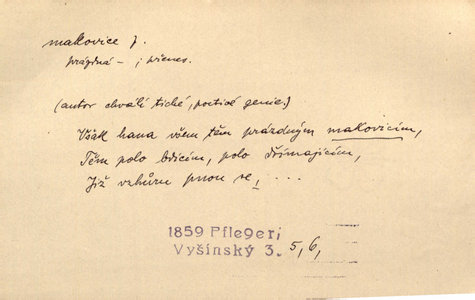 makovice f.
prázdná – ; přenes.
(autor chválí tiché, poctivé genie.)
Však hana všem těm prázdným makovicím,
Těm polo bdícím, polo dřímajícím,
Již vzhůru pnou se, ...
1859 Pfleger,
Vyšínský 3. 5,6,